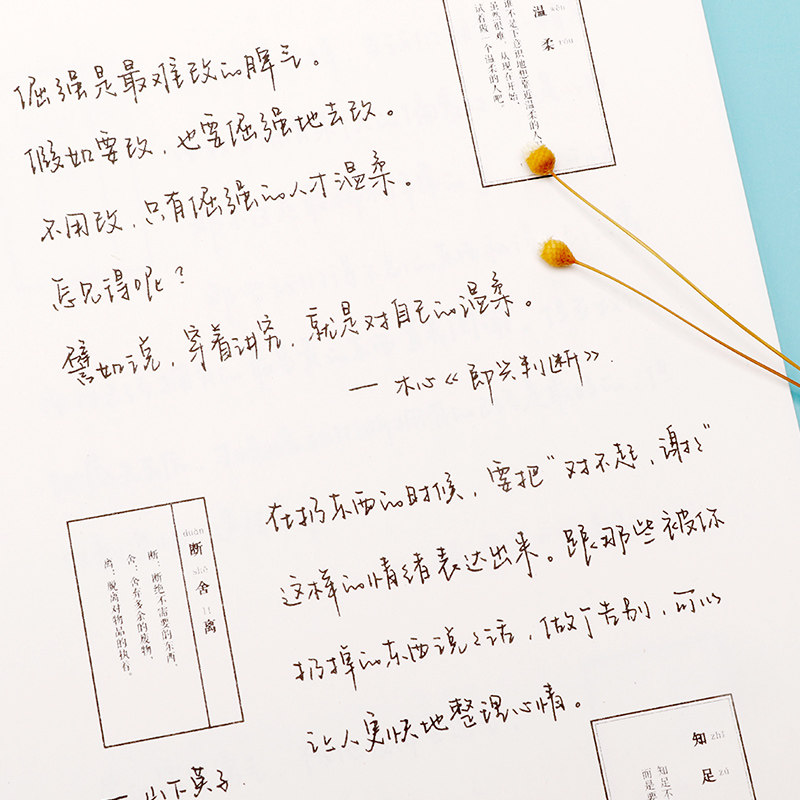 倔强是最难改的脾气。
假如要改，也要倔强地去改。
不用改，只有倔强的人才温柔。
怎见得呢？
譬如说，穿着讲究，就是对自己的温柔。
— 木心《即兴判断》.
wēn
温
柔 róu
谁不是下意识地想靠近温柔的人，
虽然很难，从现在开始，
试着做一个温柔的人吧。
在扔东西的时候，要把“对不起，谢谢”
这样的情绪表达出来。跟那些被你
扔掉的东西说说话，做个告别，可以
让人更快地整理心情。
— 山下英子.
duàn
断
shě
舍
lí
离
断：断绝不需要的东西，
舍：舍有多余的废物，
离：脱离对物品的执着。
知 zhī
足 zú
知足不
而是要